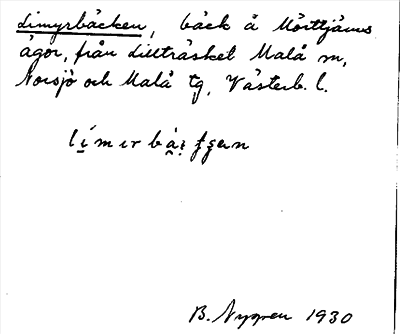 Limyrbäcken, bäck å Mörttjärns
ägor, från Lillträsket Malå m,
Norsjö och Malå tg, Västerb. l.
B. Nygren 1930